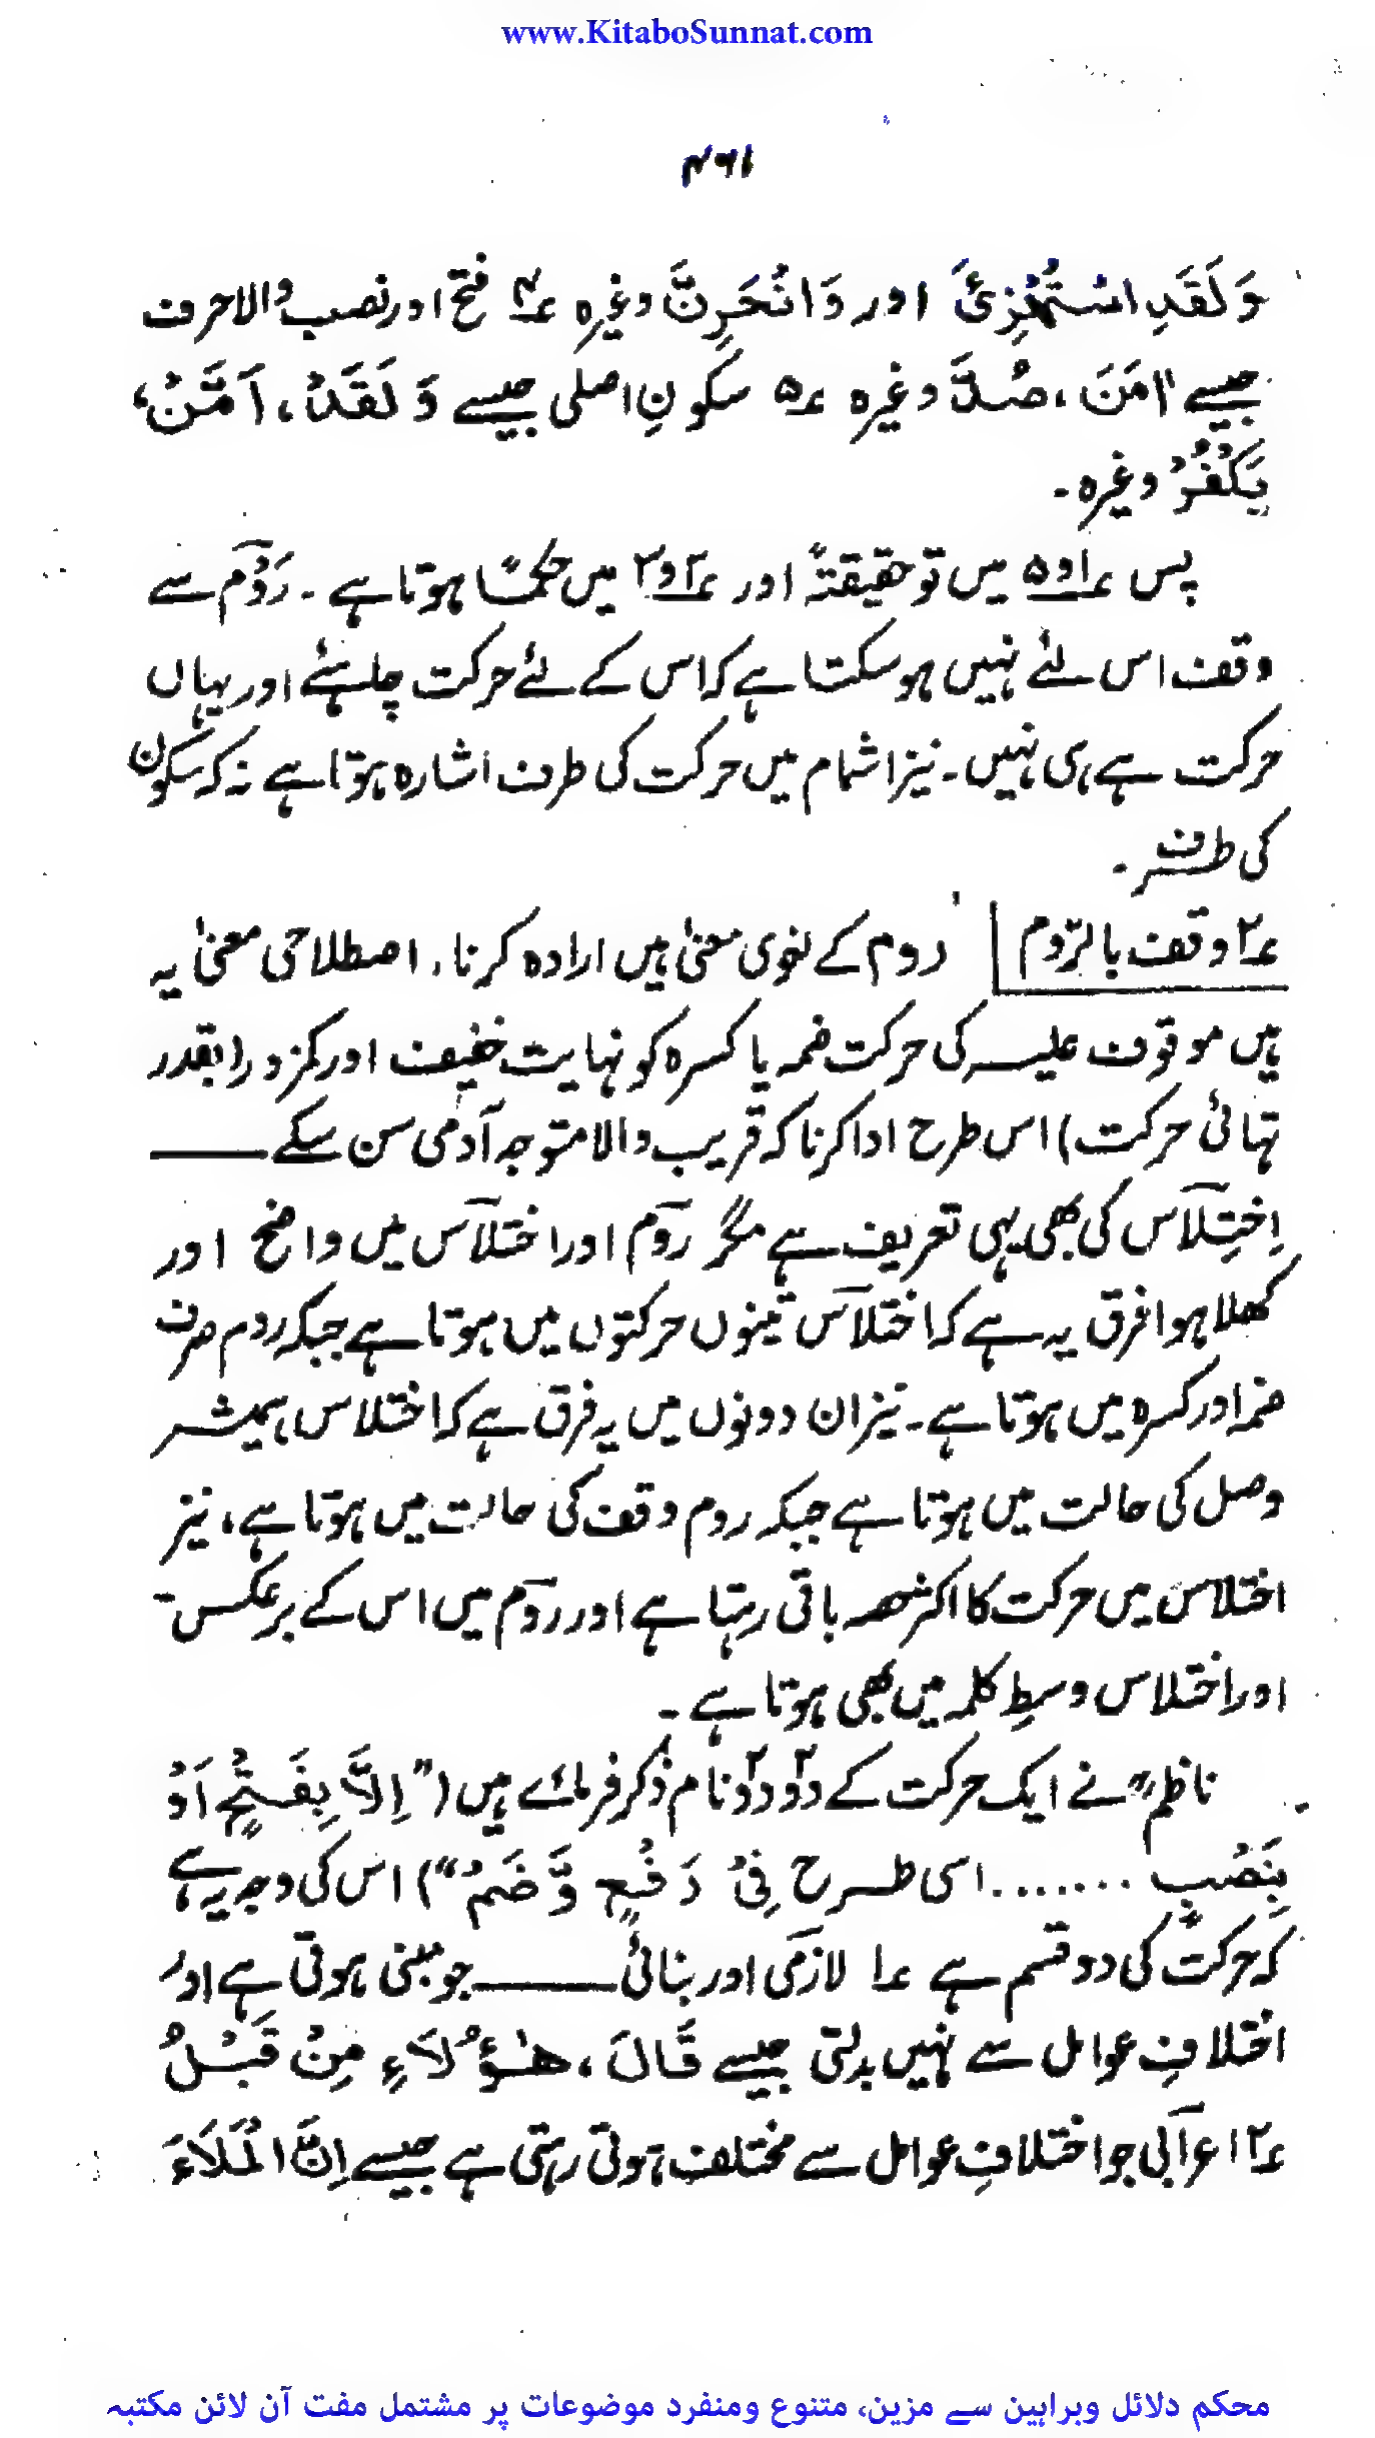 www.KitaboSunnat.com
۴۶۱
وَلَقَدِ اسْتُهْزِئَ اور وَانْحَرِنَّ وغیرہ ۴؎ فتح اور نصب والا حرف
جیسے اٰمَنَ، صُدَّ وغیرہ ۵؎ سکونِ اصلی جیسے وَلَقَدْ، اَمَّنْ،
یَکْفُرْ وغیرہ۔
پس ۱؎ و ۵ میں تو حقیقتہً اور ۲؎ و ۳ میں حکمًا ہوتا ہے۔ رَوْم سے
وقف اس لئے نہیں ہو سکتا ہے کہ اس کے لئے حرکت چاہئے اور یہاں
حرکت ہے ہی نہیں۔ نیز اشمام میں حرکت کی طرف اشارہ ہوتا ہے نہ کہ سکون
کی طرف۔
۲؎ وقف بالرّوم روم کے لغوی معنیٰ ہیں ارادہ کرنا، اصطلاحی معنیٰ یہ
ہیں موقوف علیہ کی حرکت ضمہ یا کسرہ کو نہایت خفیف اور کمزور (بقدر
تہائی حرکت) اس طرح ادا کرنا کہ قریب والا متوجہ آدمی سن سکے ——
اِختِلاس کی بھی یہی تعریف ہے مگر روم اور اختلاس میں واضح اور
کھلا ہوا فرق یہ ہے کہ اختلاس تینوں حرکتوں میں ہوتا ہے جبکہ روم صرف
ضمہ اور کسرہ میں ہوتا ہے۔ نیز ان دونوں میں یہ فرق ہے کہ اختلاس ہمیشہ
وصل کی حالت میں ہوتا ہے جبکہ روم وقف کی حالت میں ہوتا ہے، نیز
اختلاس میں حرکت کا اکثر حصہ باقی رہتا ہے اور روم میں اس کے برعکس۔
اور اختلاس وسطِ کلمہ میں بھی ہوتا ہے۔
ناظمؒ نے ایک حرکت کے دو دو نام ذکر فرمائے ہیں (”اِلَّا بِفَتْحٍ اَوْ
بِنَصْبٍ ........ اسی طرح فِیْ رَفْعٍ وَّضَمْ“) اس کی وجہ یہ ہے
کہ حرکت کی دو قسم ہے ۱؎ لازمی اور بنائی —— جو مبنی ہوتی ہے اور
اختلافِ عوامل سے نہیں بدلتی جیسے قَالَ، هٰٓؤُلَاءِ مِنْ قَبْلُ
۲؎ اعرابی جو اختلافِ عوامل سے مختلف ہوتی رہتی ہے جیسے اِنَّ الْمَلَاَءَ
محکم دلائل وبراہین سے مزین، متنوع ومنفرد موضوعات پر مشتمل مفت آن لائن مکتبہ